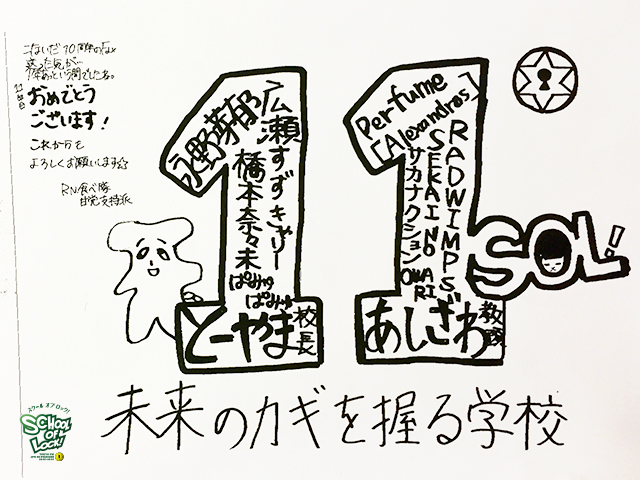 こないだ10周年の
1年あっという間でしたね。
11周年
おめでとう
ございます!
これからも
よろしくお願いします☆
RN 食べ豚
目党支持派
永野芽郁
広瀬すず
きゃりー
ぱみゅ
ぱみゅ
橋本奈々未
とーやま校長
Perfume
[Alexandros]
RADWIMPS
SEKAI NO OWARI
サカナクション
あしざわ教頭
SOL!
未来のカギを握る学校
スクール オブ ロック!
SCHOOL
OF
LOCK!